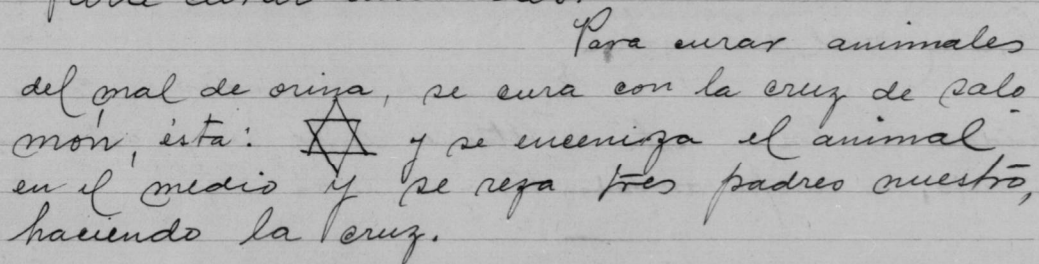 Para curar animales
del mal de orina, se cura con la cruz de salo
món, ésta: ✡ y se enceniza el animal
en el medio y se reza tres padres nuestro,
haciendo la cruz.